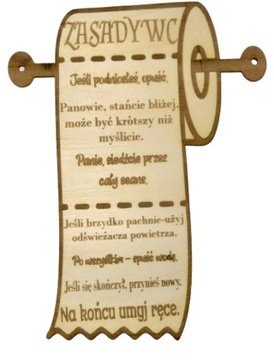 ZASADY WC
Jeśli podniosłeś, opuść.
Panowie, stańcie bliżej,
może być krótszy niż
myślicie.
Panie, siedźcie przez
cały seans.
Jeśli brzydko pachnie-użyj
odświeżacza powietrza.
Po wszystkim - opuść wodę.
Jeśli się skończył, przynieś nowy.
Na końcu umyj ręce.